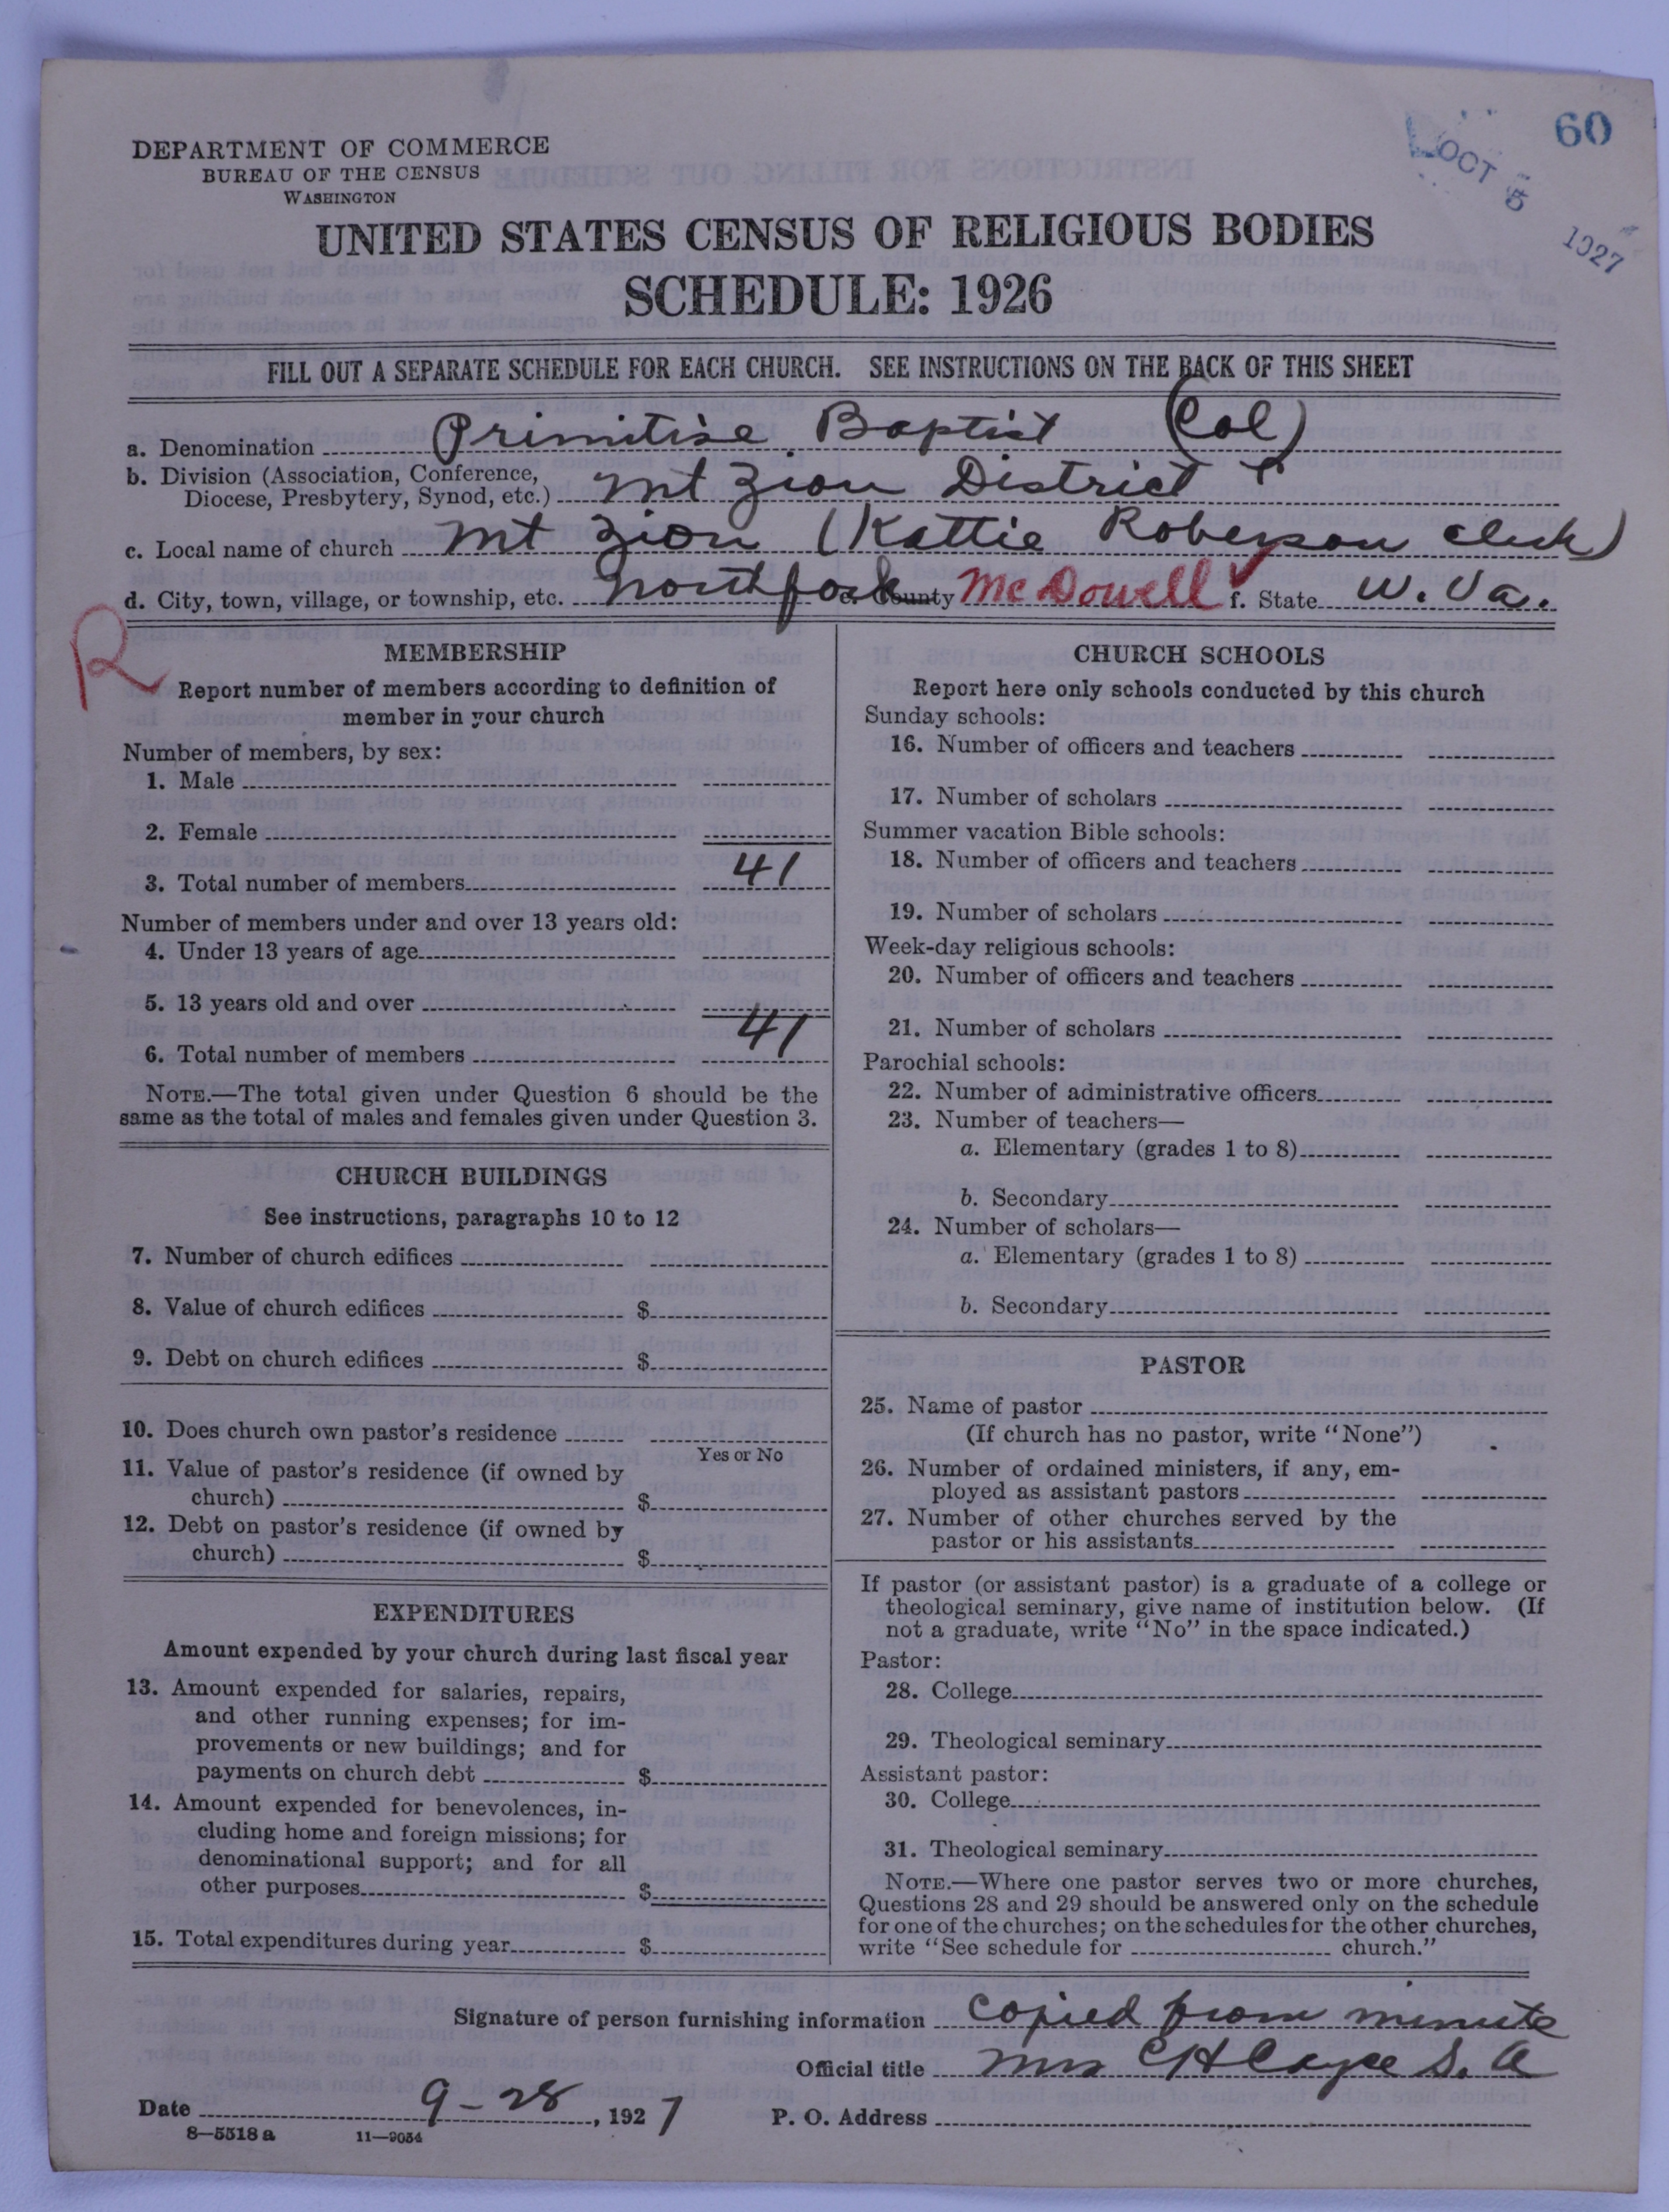 60
OCT 5 1927
DEPARTMENT OF COMMERCE
BUREAU OF THE CENSUS
WASHINGTON
UNITED STATES CENSUS OF RELIGIOUS BODIES
SCHEDULE: 1926
FILL OUT A SEPARATE SCHEDULE FOR EACH CHURCH. SEE INSTRUCTIONS ON THE BACK OF THIS SHEET
a. Denomination Primitive Baptist (Col)
b. Division (Association, Conference,
Diocese, Presbytery, Synod, etc.) Mt Zion District
c. Local name of church Mt Zion (Kattie Roberson clerk)
d. City, town, village, or township, etc. Northfork e. County McDowell f. State W. Va.
R
MEMBERSHIP
Report number of members according to definition of
member in your church
Number of members, by sex:
1. Male
2. Female
3. Total number of members 41
Number of members under and over 13 years old:
4. Under 13 years of age
5. 13 years old and over
6. Total number of members 41
NOTE.—The total given under Question 6 should be the
same as the total of males and females given under Question 3.
CHURCH BUILDINGS
See instructions, paragraphs 10 to 12
7. Number of church edifices
8. Value of church edifices $
9. Debt on church edifices $
10. Does church own pastor's residence
Yes or No
11. Value of pastor's residence (if owned by
church) $
12. Debt on pastor's residence (if owned by
church) $
EXPENDITURES
Amount expended by your church during last fiscal year
13. Amount expended for salaries, repairs,
and other running expenses; for im-
provements or new buildings; and for
payments on church debt $
14. Amount expended for benevolences, in-
cluding home and foreign missions; for
denominational support; and for all
other purposes $
15. Total expenditures during year $
CHURCH SCHOOLS
Report here only schools conducted by this church
Sunday schools:
16. Number of officers and teachers
17. Number of scholars
Summer vacation Bible schools:
18. Number of officers and teachers
19. Number of scholars
Week-day religious schools:
20. Number of officers and teachers
21. Number of scholars
Parochial schools:
22. Number of administrative officers
23. Number of teachers—
a. Elementary (grades 1 to 8)
b. Secondary
24. Number of scholars—
a. Elementary (grades 1 to 8)
b. Secondary
PASTOR
25. Name of pastor
(If church has no pastor, write "None")
26. Number of ordained ministers, if any, em-
ployed as assistant pastors
27. Number of other churches served by the
pastor or his assistants
If pastor (or assistant pastor) is a graduate of a college or
theological seminary, give name of institution below. (If
not a graduate, write "No" in the space indicated.)
Pastor:
28. College
29. Theological seminary
Assistant pastor:
30. College
31. Theological seminary
NOTE.—Where one pastor serves two or more churches,
Questions 28 and 29 should be answered only on the schedule
for one of the churches; on the schedules for the other churches,
write "See schedule for church."
Signature of person furnishing information Copied from minute
Official title Mrs C H Cayce S. A
Date 9-28, 1927 P. O. Address
8—5518 a 11—9034